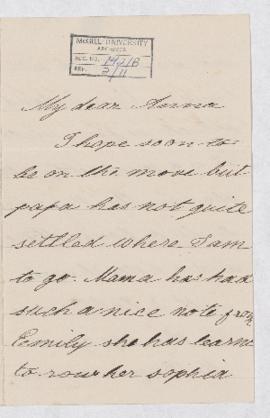 McGILL UNIVERSITY
ARCHIVES
ACC. NO.
REF.
My dear Anna
I hope soon to
be on the move but
papa has not quite
settled where I am
to go. Mama has had
such a nice note from
Emily she has learnt
to row her sophia